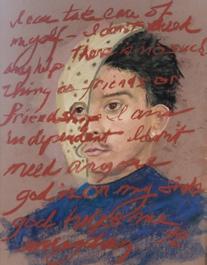 I can take care of
myself – I don't need
any help. There is no such
thing as friends or
friendship. I am
independent I don't
need anyone
god is on my side
god helps me